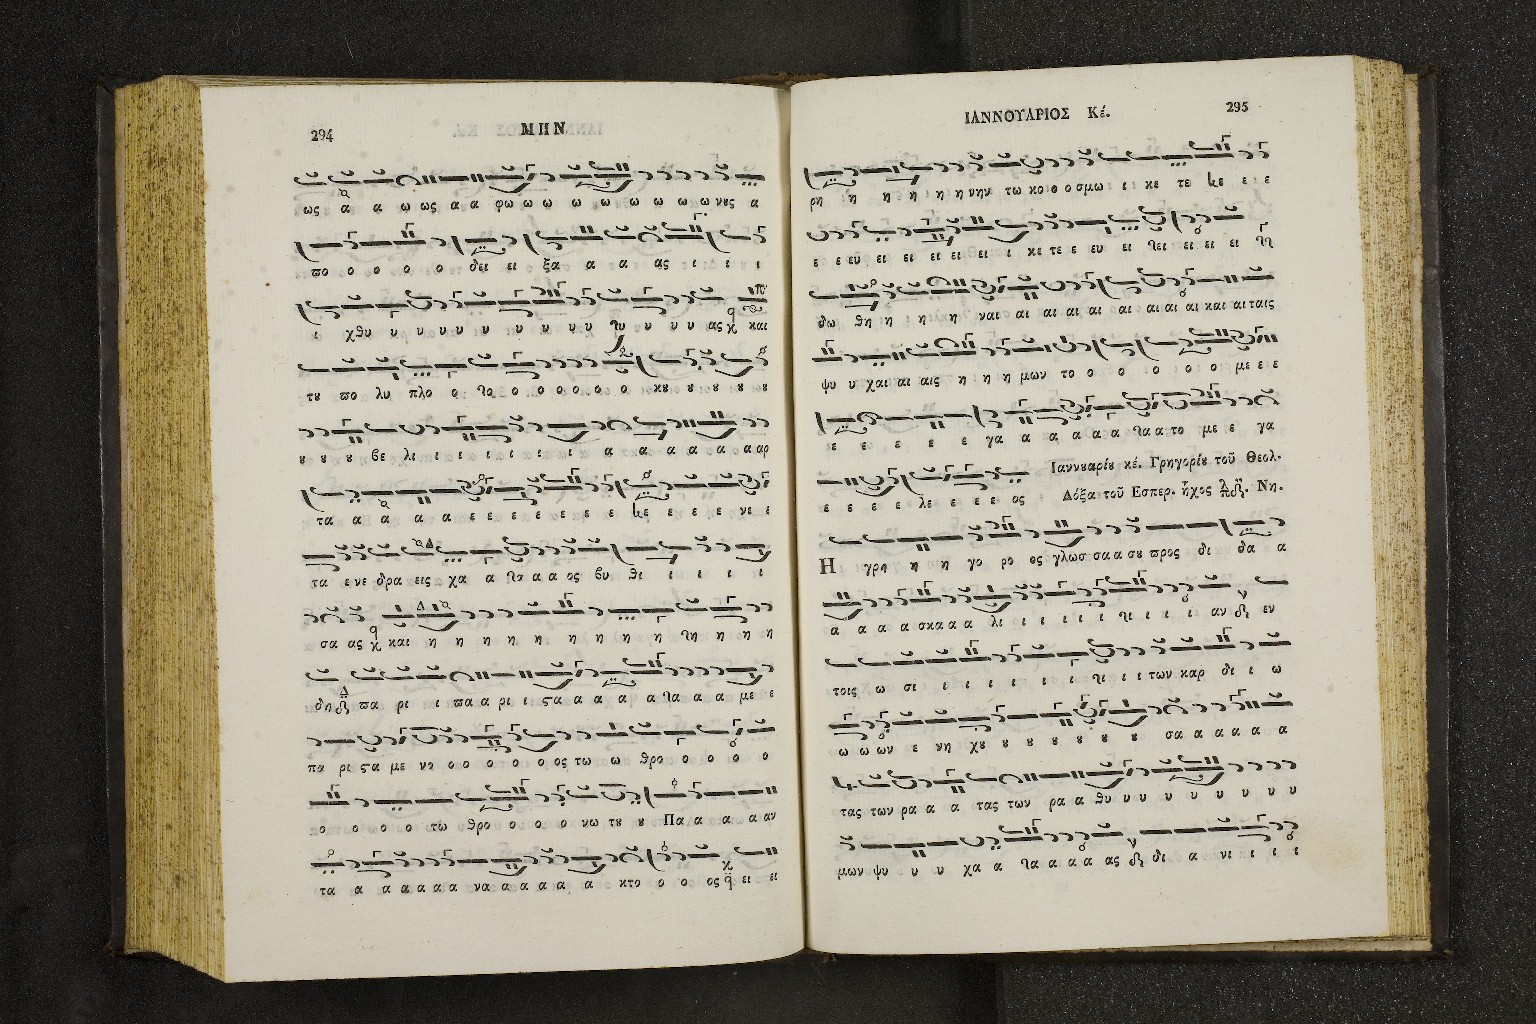 294 ΜΗΝ
ως α α ω ως α α φω ω ω ω ω ω ω ω ω νος α
πο ο ο ο ο δει ει ξα α α ας ι ι ι
ι χθυ υ υ υυ υ υ υ υ υ υ υ υ υ ας και
του πο λυ πλο ο ο ο ο ο ο ο κου ου ου ου ου
ου ου ου βε λι ι ι ι ι ι ι α α α α α α αρ
τα α α α α ε ε ε ε ε ε ε ε ε ε ε νε ε
τα ε νε δρα εις χα α α α ος βυ θι ι ι ι ι
σα ας και η η η η η η η η η η η η
δη πα ρι ι πα α ρι ι ςα α α α α α α α με ε
πα ρι ςα με νο ο ο ο ο ο ος τω ω θρο ο ο ο ο
ο ο ο ο ο τω θρο ο ο ο νω του ου Πα α α α αν
τα α α α α α α να α α α α α κτο ο ο ος ει ει
ΙΑΝΝΟΥΑΡΙΟΣ Κέ. 295
ρη η η η η η νην τω κο ο ο σμω ι κε τε ε ε
ε ε ευ ει ει ει ει ει ι κε τε ε ευ ει ει ει ει
δω θη η η η ναι αι αι αι αι αι αι αι αι και αι ταις
ψυ υ χαι αι αις η η η μων το ο ο ο ο ο με ε ε
ε ε ε ε ε γα α α α α α α α το με ε γα
ε ε ε ε λε ε ε ε ος Ιαννουαρίου κέ. Γρηγορίου τοῦ Θεολ.
Δόξα τοῦ Εσπερ. ἦχος Νη.
Η γρη η η γο ρο ος γλωσ σα α σου προς δι δα α
α α α α σκα α α λι ι ι ι ι ι ι ι αν εν
τοις ω σι ι ι ι ι ι ι ι ι ι των καρ δι ι ω
ω ω ων ε νη χου ου ου ου ου ου ου σα α α α α α
τας των ρα α α τας των ρα α θυ υ υ υ υ υ υ υ υ
μων ψυ υ υ χα α α α α α ας δι α νι ι ι ι